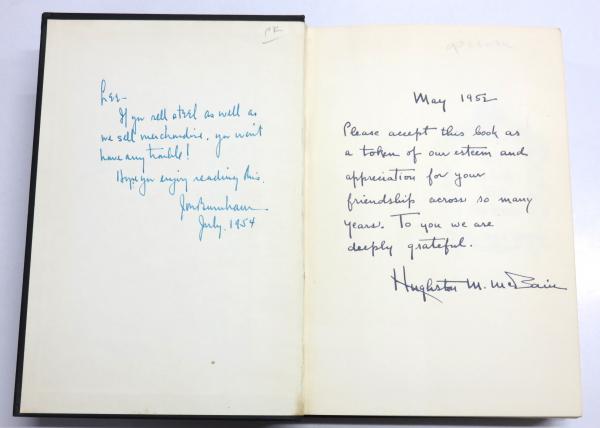 PK
Lee-
If you sell steel as well as
we sell merchandise, you won't
have any trouble!
Hope you enjoy reading this.
Jon Burnham
July, 1954
May 1952
Please accept this book as
a token of our esteem and
appreciation for your
friendship across so many
years. To you we are
deeply grateful.
Hughston M. McBain